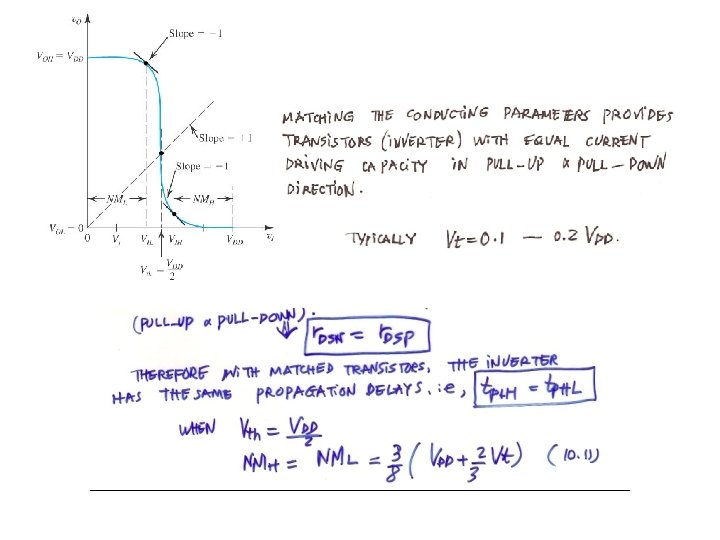 vO
Slope = −1
VOH = VDD
Slope = +1
Slope = −1
NML
NMH
VOL = 0
0
Vt
VIL
VIH
VDD
vI
Vth = VDD/2
MATCHING THE CONDUCTING PARAMETERS PROVIDES
TRANSISTORS (INVERTER) WITH EQUAL CURRENT
DRIVING CAPACITY IN PULL-UP & PULL-DOWN
DIRECTION.
TYPICALLY Vt=0.1 — 0.2 VDD.
(PULL-UP & PULL-DOWN).
rDSN = rDSP
THEREFORE WITH MATCHED TRANSISTORS, THE INVERTER
HAS THE SAME PROPAGATION DELAYS. i.e, tPLH = tPHL
WHEN Vth = VDD/2
NMH = NML = 3/8 (VDD + 2/3 Vt) (10.11)